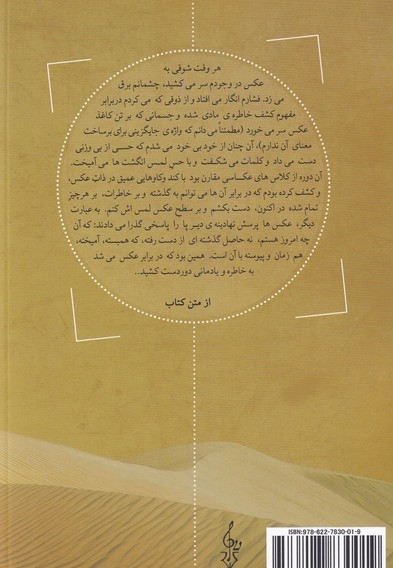 هر وقت شوقی به
عکس در وجودم سر می کشید، چشمانم برق
می زد. فشارم انگار می افتاد و از ذوقی که می کردم دربرابر
مفهوم کشف خاطره ی مادی شده و جسمانی که بر تن کاغذ
عکس سر می خورد (مطمئناً می دانم که واژه ی جایگزینی برای برساخت
معنای آن ندارم)، آن چنان از خود بی خود می شدم که حسی از بی وزنی
دست می داد و کلمات می شکفت و با حس لمس انگشت ها می آمیخت.
آن دوره از کلاس های عکاسی مقارن بود با کند وکاوهایی عمیق در ذات عکس،
و کشف کرده بودم که در برابر آن ها می توانم به گذشته و بر خاطرات، بر هرچیز
تمام شده در اکنون، دست بکشم و بر سطح عکس لمس اش کنم. به عبارت
دیگر، عکس ها پرسش نهادینه ی دیر پا را پاسخی گذرا می دادند: که آن
چه امروز هستم، نه حاصل گذشته ای از دست رفته، که همبسته، آمیخته،
هم زمان و پیوسته با آن است. همین بود که در برابر عکس می شد
به خاطره و یادمانی دوردست کشید..
از متن کتاب
ISBN:978-622-7830-01-9